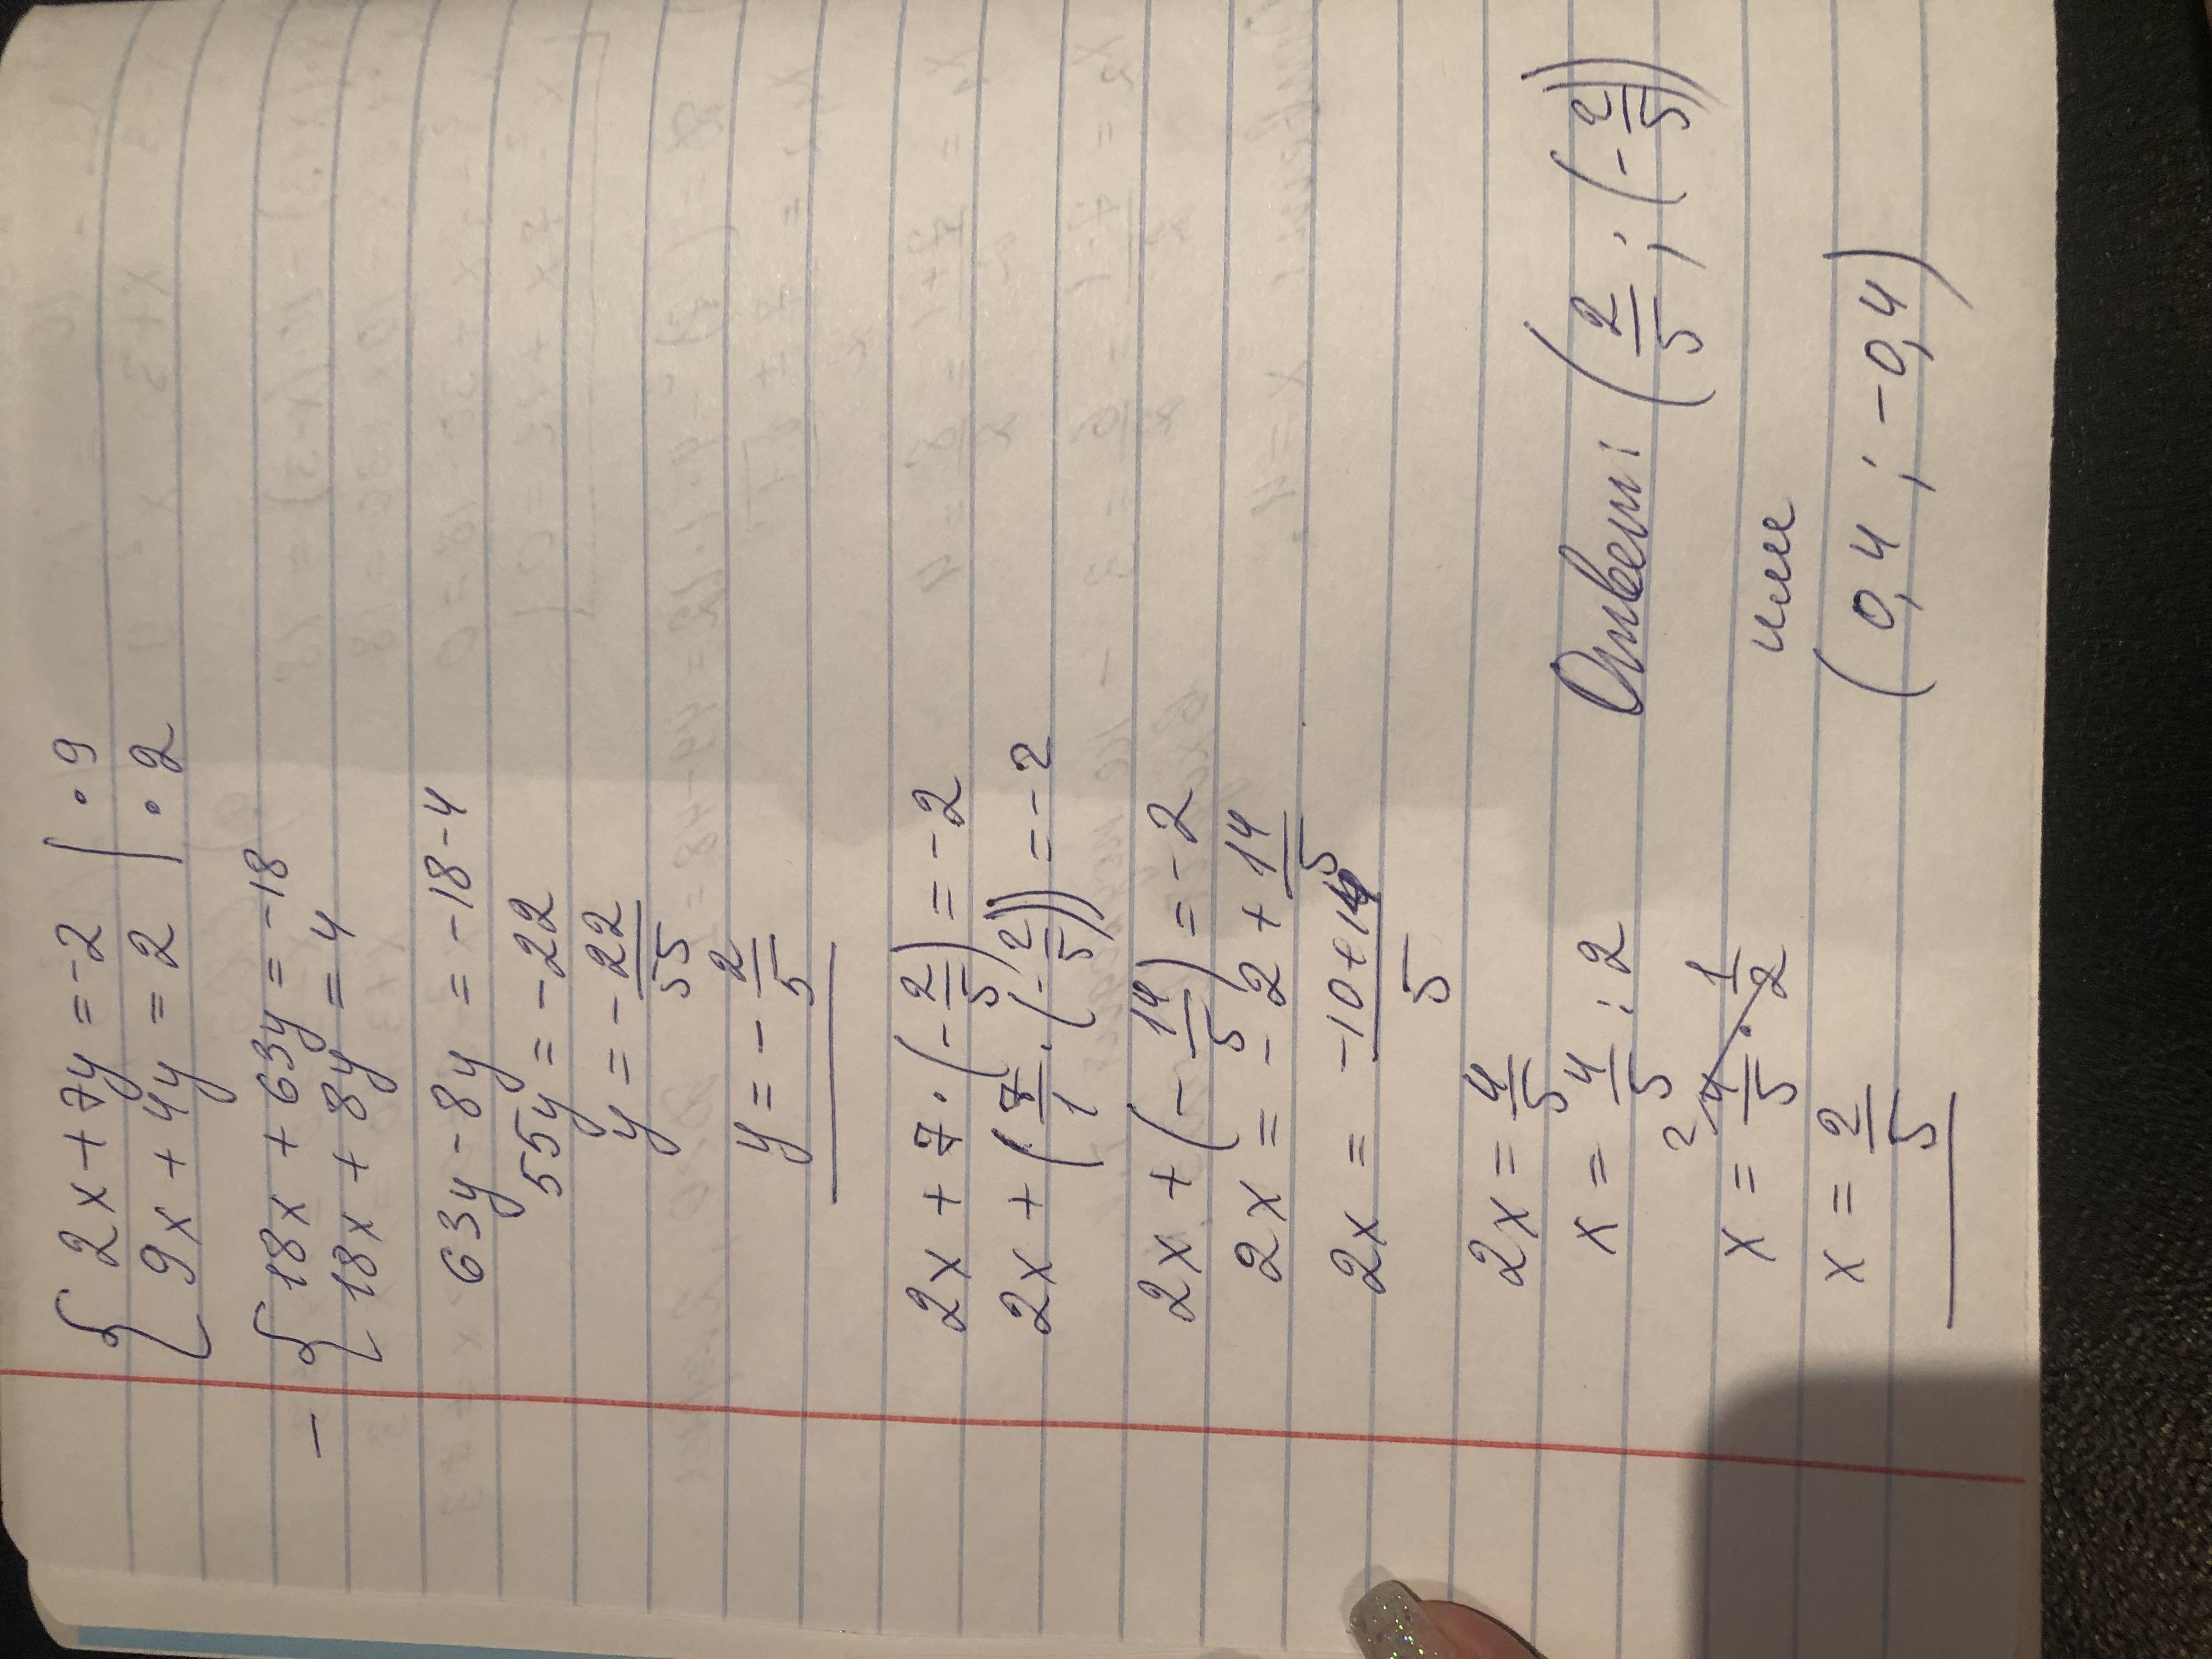 { 2x + 7y = -2 | · 9
9x + 4y = 2 | · 2
- { 18x + 63y = -18
18x + 8y = 4
63y - 8y = -18 - 4
55y = -22
y = - 22/55
y = - 2/5
2x + 7 · (- 2/5) = -2
2x + (7/1 · (- 2/5)) = -2
2x + (- 14/5) = -2
2x = -2 + 14/5
2x = -10+14/5
2x = 4/5
x = 4/5 : 2
x = 2 4/5 · 1/2
x = 2/5
Ответ: (2/5 ; (- 2/5))
или
(0,4 ; -0,4)